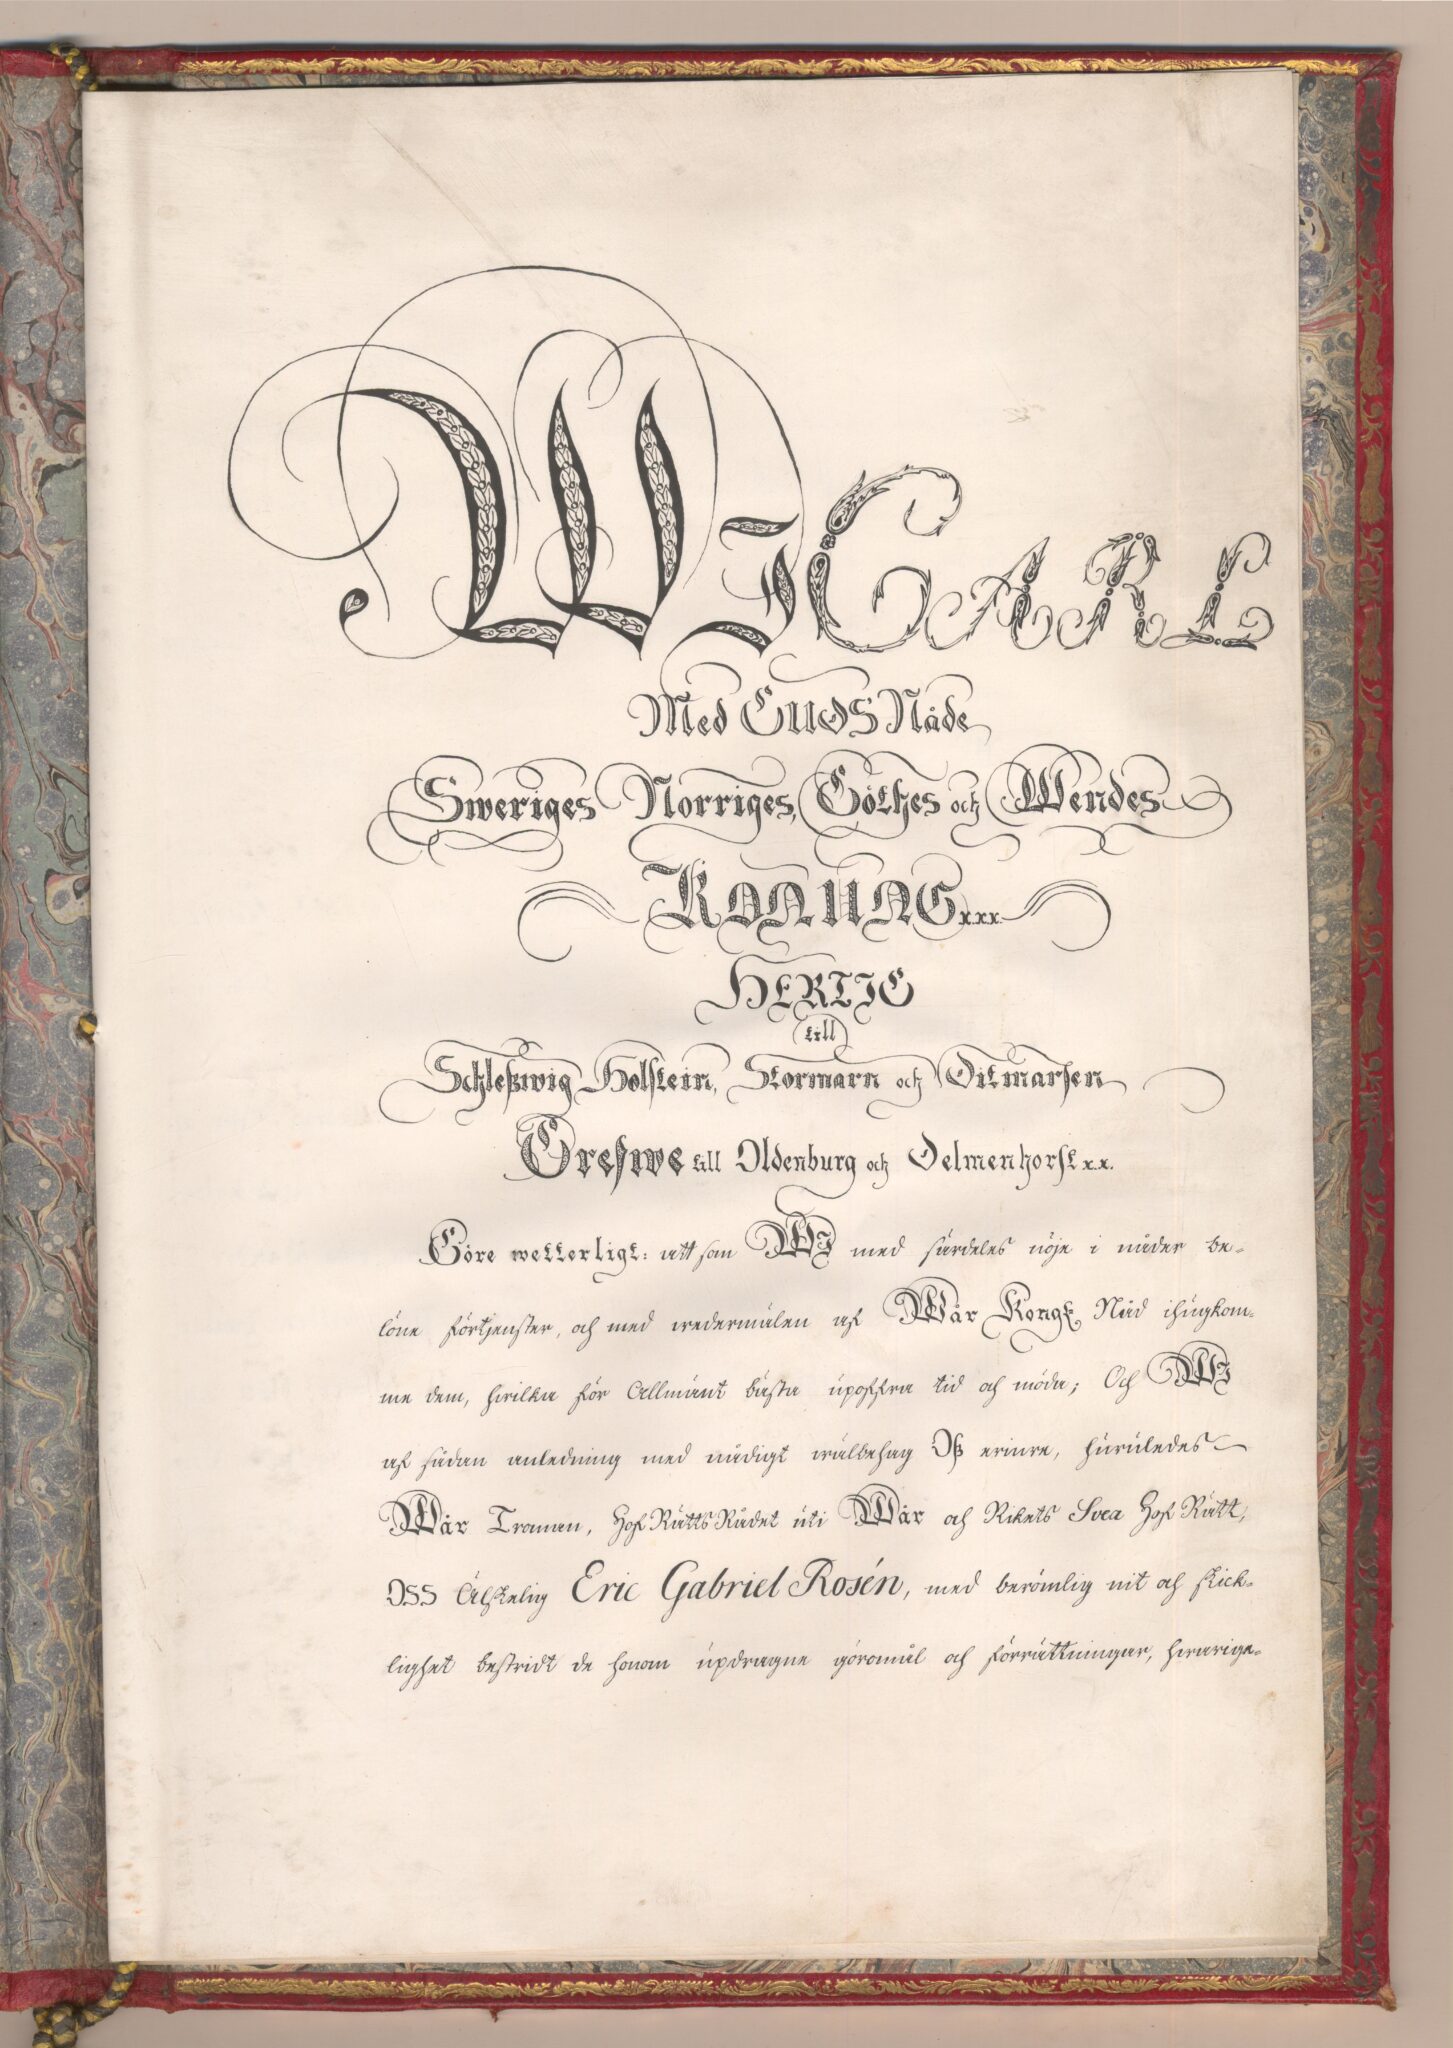 WJ CARL
Med GUDS Nåde
Sweriges Norriges, Göthes och Wendes
KONUNG x.x.x.
HERTIG
till
Schleßwig Holstein, Stormarn och Ditmarsen
Grefwe till Oldenburg och Delmenhorst x.x.
Göre wetterligt: att som WJ med särdeles nöje i nåder be-
löne förtjenster, och med wedermälen af Wår Kongl. Nåd ihugkom-
me dem, hwilka för Allmänt bästa upoffra tid och möda; Och WJ
af sådan anledning med nådigt wälbehag Oß erinre, huruledes
Wår Troman, Hof Rätts Rådet uti Wår och Rikets Svea Hof Rätt,
OSS Älskelig Eric Gabriel Rosén, med berömlig nit och skick-
lighet bestridt de honom updragne göromål och förrättningar, hwarige-